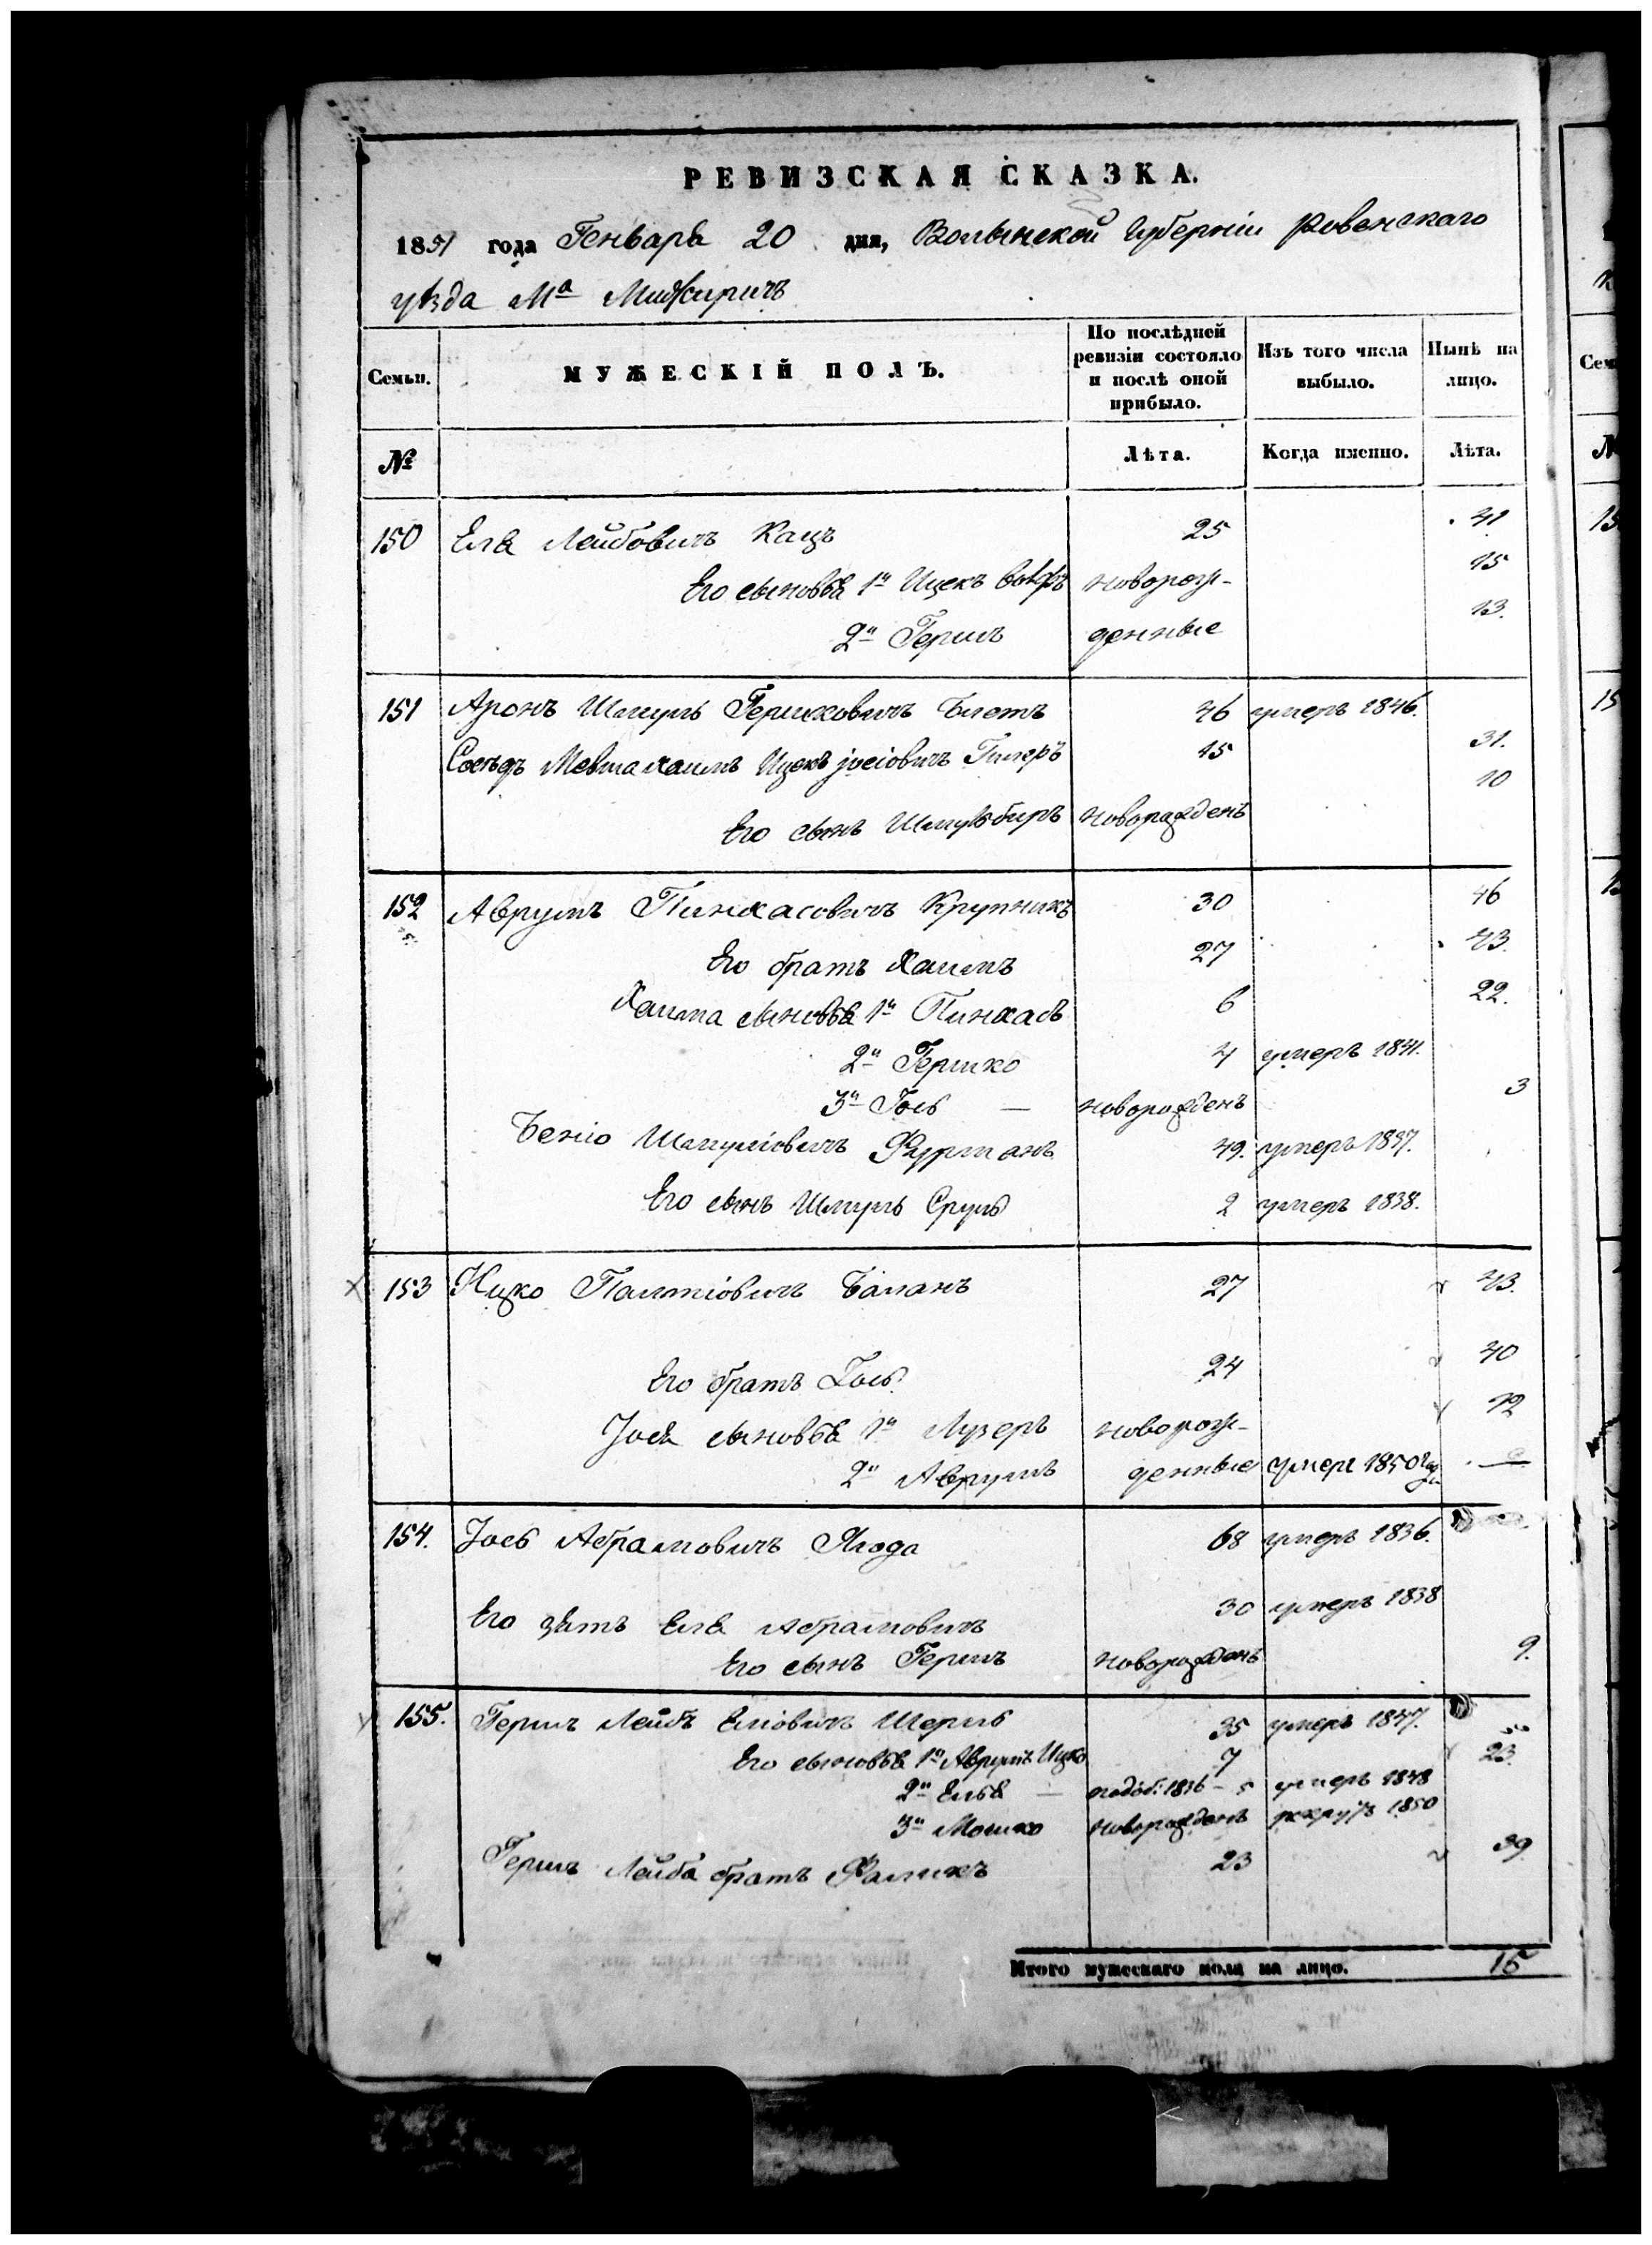 РЕВИЗСКАЯ СКАЗКА.
1851 года Генваря 20 дня, Волынской Губерніи Ровенскаго
уѣзда Ма Межиричъ
Семьи. МУЖЕСКІЙ ПОЛЪ. По послѣдней ревизіи состояло и послѣ оной прибыло. Изъ того числа выбыло. Нынѣ на лицо.
№ Лѣта. Когда именно. Лѣта.
150 Еля Лейбовичъ Кацъ 25 41
Его сыновья 1й Ицекъ Вольфъ новорож- 15
2й Гершъ денные 13.
151 Аронъ Шмуль Гершковичъ Блетъ 46 умеръ 1846.
Сосѣдъ Ицекъ Іосіовичъ 15 31.
Его сынъ новорожденъ 10
152 Аврумъ Пинхасовичъ Крупникъ 30 46
Его братъ Хаимъ 27 43.
Хаима сыновья 1й Пинхасъ 6 22.
2й Гершко 4 умеръ 1841.
3й Іось — новорожденъ 3
Беніо Шмуліовичъ Фурманъ 49. умеръ 1837.
Его сынъ Шмуль Сруль 2 умеръ 1838.
153 Ицко Баланъ 27 43.
Его братъ Іось 24 40
Іося сыновья 1й Лузеръ новорож- 12
2й Аврумъ денные умеръ 1850
154. Іось Абрамовичъ Ягода 68 умеръ 1836.
Его зять Еля Абрамовичъ 30 умеръ 1838
Его сынъ Гершъ новорожденъ 9.
155. Гершъ Лейбъ Еліовичъ Шерль 35 умеръ 1847.
Его сыновья 1й Аврумъ Ицко 7 23.
2й Елья — 1836 – 5 умеръ 1848
3й Мошко новорожденъ рекрутъ 1850
Гершъ Лейба братъ Фаликъ 23 39
Итого мужескаго пола на лицо. 15